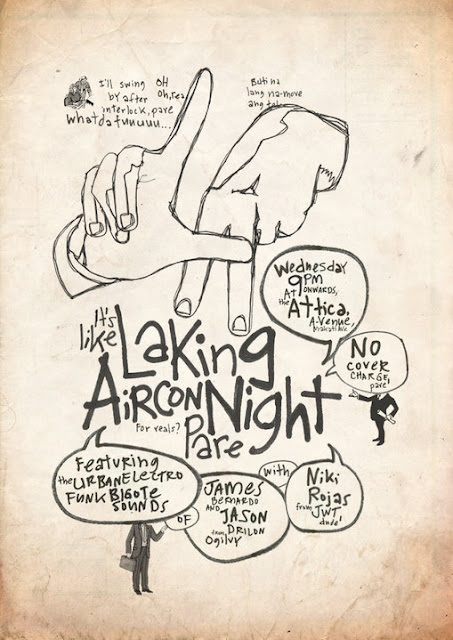 I'll swing
by after
interlock, pare
whatdafuuuuu...
OH
Oh, Yea
Buti na
lang na-move
ang
Wednesday
9PM
At onwards,
the Attica,
A.Venue,
Makati Ave.
NO
COVER
CHARGE,
pare!
It's
like Laking
AirCon Night
For reals? Pare
Featuring
the URBANElectro
FUNK BIGOTE
SOUNDS
OF
JAMES
BERNARDO
AND JASON
DRILON
from
Ogilvy
with
Niki
Rojas
from JWT
dude!